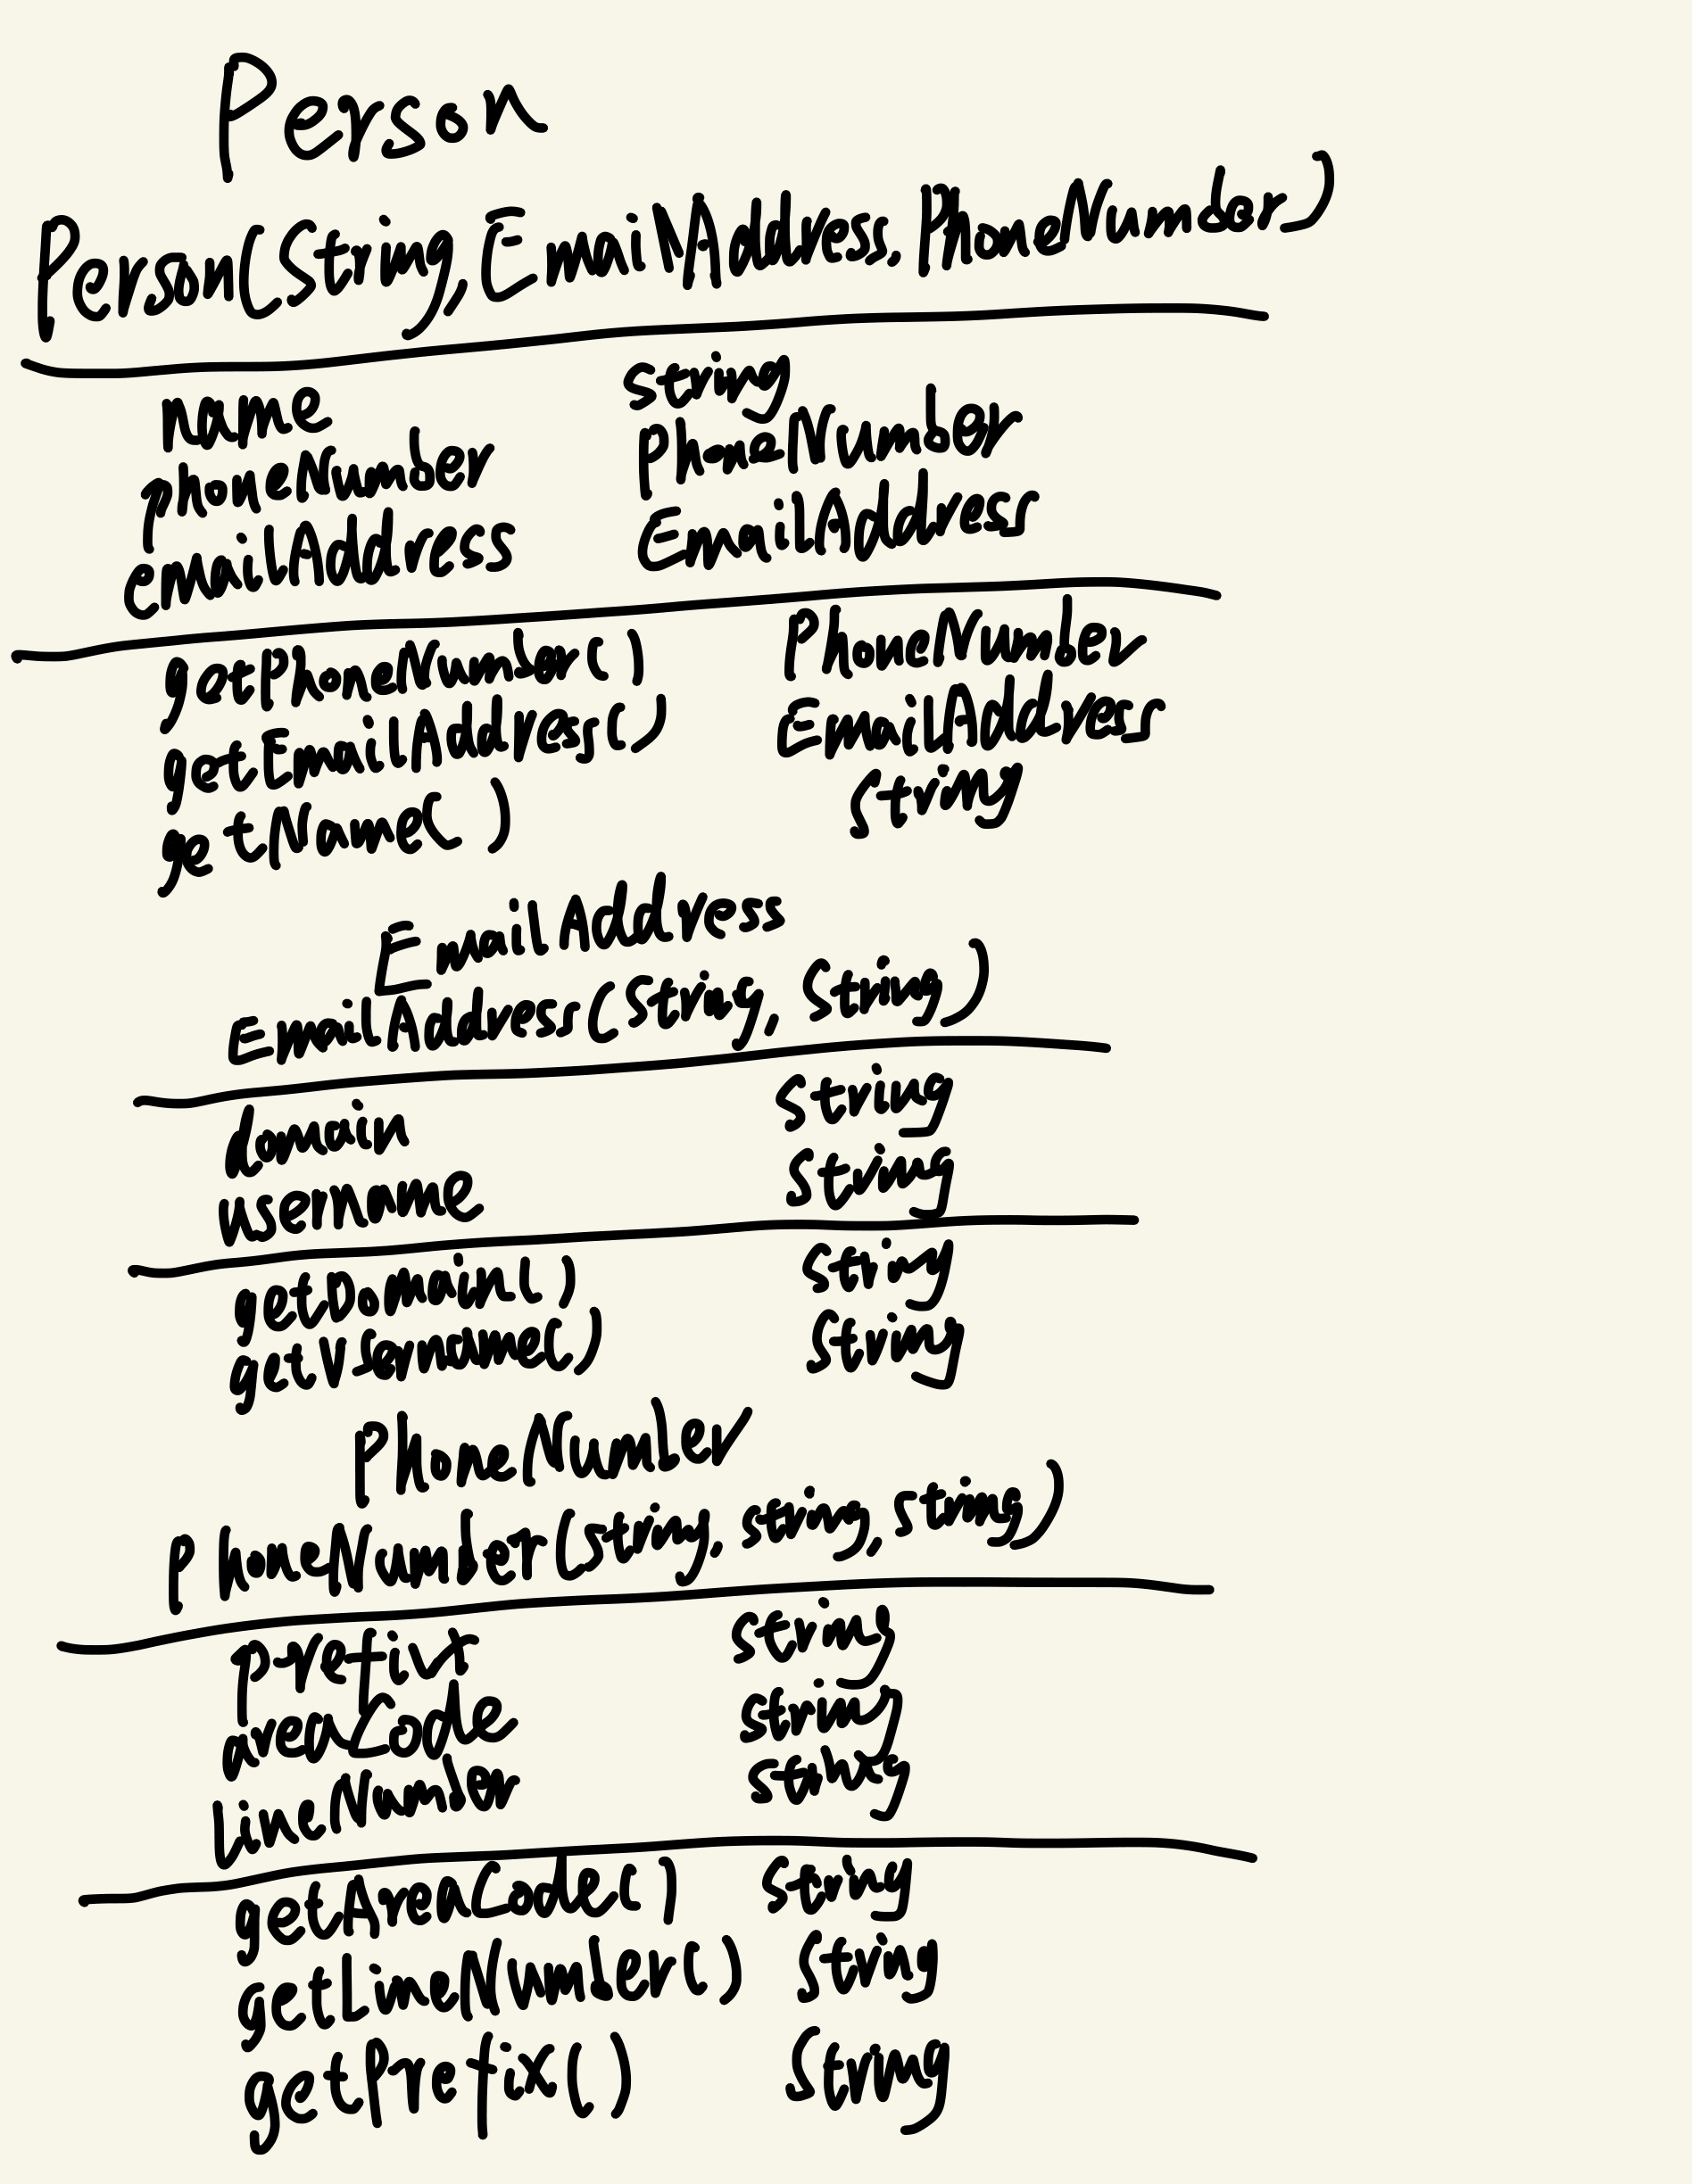 Person
Person(String, EmailAddress, PhoneNumber)
name string
phoneNumber PhoneNumber
emailAddress EmailAddress
getPhoneNumber() PhoneNumber
getEmailAddress() EmailAddress
getName() String
EmailAddress
EmailAddress(String, String)
domain String
username String
getDomain() String
getUsername() String
PhoneNumber
PhoneNumber(string, string, string)
prefix string
areaCode string
LineNumber string
getAreaCode() string
getLineNumber() String
getPrefix() String